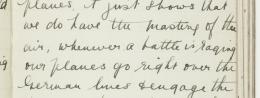 planes, it just shows that
we do have the masting of the
air, whenever a battle is raging
our planes go right over the
German lines & engage the